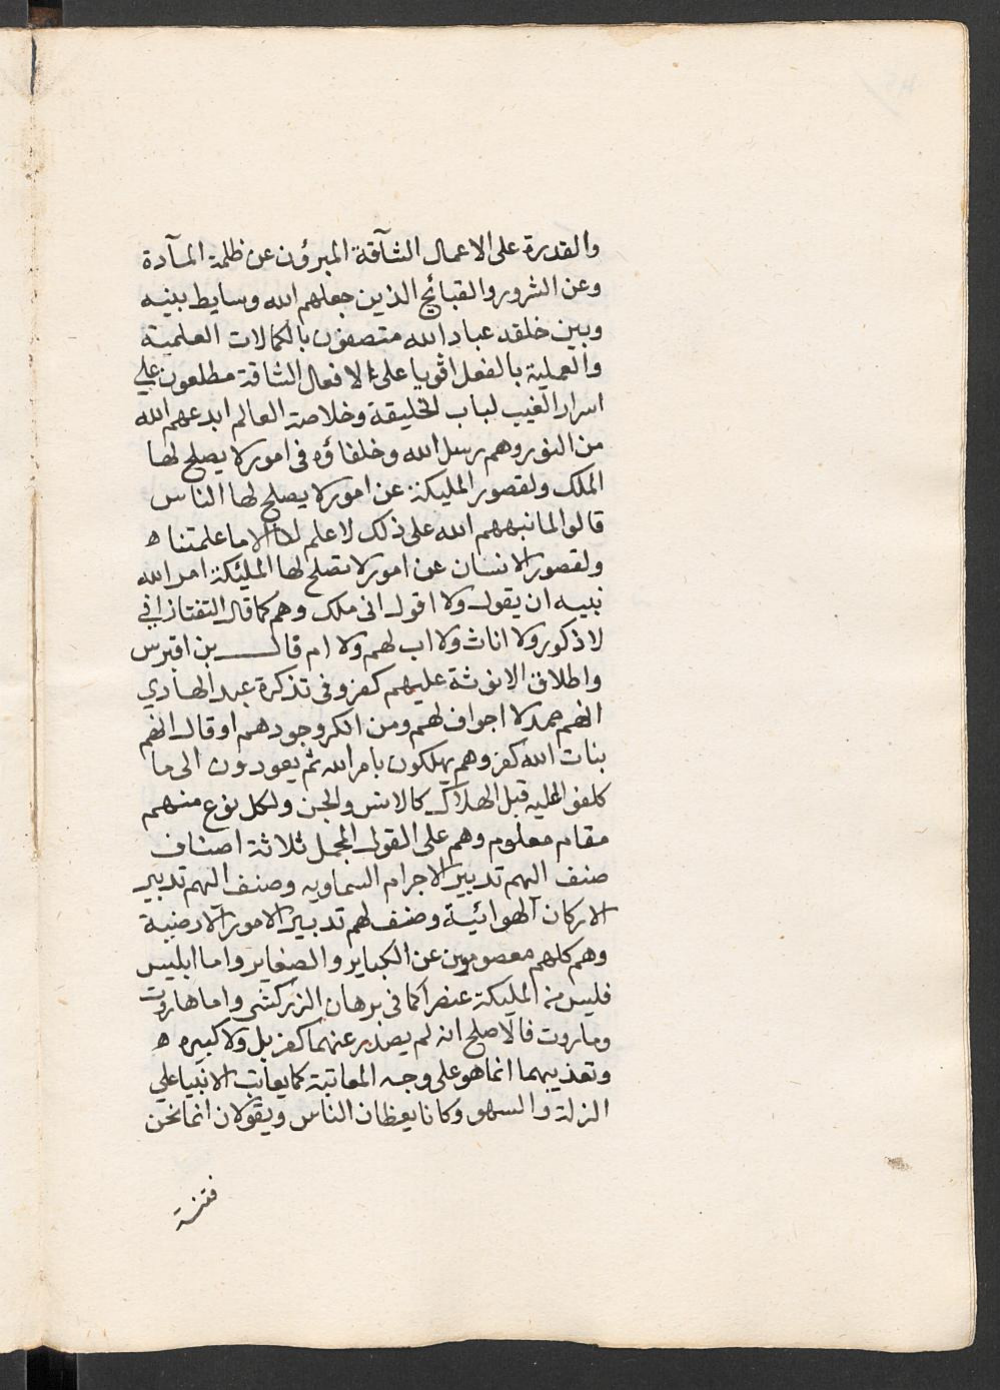 والقدرة على الاعمال الشآقة المبرؤن عن ظلمة المآدة
وعن الشرور والقبائح الذين جعلهم الله وسايط بينه
وبين خلقه عباد الله متصفون بالكمالات العلمية
والعملية بالفعل اقويا على الافعال الشاقة مطلعون على
اسرار الغيب لباب الخليقة وخلاصة العالم ابدعهم الله
من النور وهم رسل الله وخلفاؤه فى امور لا يصلح لها
الملك ولقصور المليكة عن امور لا يصلح لها الناس
قالوا لما نبههم الله على ذلك لا علم لنا الا ما علمتنا ه
ولقصور الانسان عن امور لا تصلح لها المليئكة امر الله
نبيه ان يقول ولا اقول انى ملك وهم كما قال التفتازانى
لا ذكور ولا اناث ولا اب لهم ولا ام قال بن اقبرس
واطلاق الانوثة عليهم كفر وفى تذكرة عبد الهادي
انهم صمد لا اجواف لهم ومن انكر وجودهم او قال انهم
بنات الله كفر وهم يهلكون بامر الله ثم يعودون الى ما
كلفوا عليه قبل الهلاك كالانس والجن ولكل نوع منهم
مقام معلوم وهم على القول المجمل ثلاثة اصناف
صنف اليهم تدبير الاجرام السماويه وصنف اليهم تدبير
الاركان الهوائية وصنف لهم تدبير الامور الارضية
وهم كلهم معصومين عن الكباير والصغاير واما ابليس
فليس من المليكة عنصرا كما فى برهان الزركشى واما هاروت
وماروت فالاصلح انه لم يصدر عنهما كفر بل ولا كبيره ه
وتعذيبهما انما هو على وجه المعاتبة كما يعاتب الانبيا على
الزلة والسهو وكانا يعظان الناس ويقولان انما نحن
فتنة